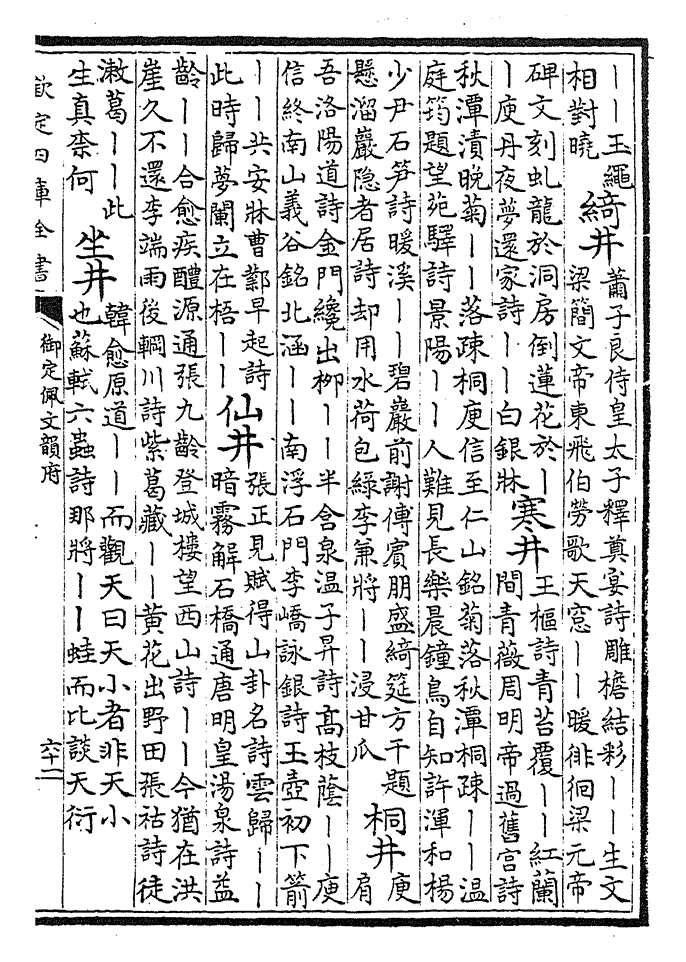 ――玉繩
相對曉
綺井
蕭子良侍皇太子釋奠宴詩雕檐結彩――生文
梁簡文帝東飛伯勞歌天窻――暖徘徊梁元帝
碑文刻虬龍於洞房倒蓮花於―
―庾丹夜夢還家詩――白銀牀
寒井
王樞詩青苔覆――紅蘭
間青薇周明帝過舊宫詩
秋潭漬晚菊――落疎桐庾信至仁山銘菊落秋潭桐疎――温
庭筠題望苑驛詩景陽――人難見長樂晨鐘鳥自知許渾和楊
少尹石笋詩暖溪――碧巖前謝傅賓朋盛綺筵方干題
懸溜巖隐者居詩却用水荷包緑李兼將――浸甘瓜
桐井
庾
肩
吾洛陽道詩金門纔出柳――半含泉温子昇詩髙枝蔭――庾
信終南山義谷銘北涵――南浮石門李嶠詠銀詩玉壺初下箭
――共安牀曹鄴早起詩
此時歸夢闌立在梧――
仙井
張正見賦得山卦名詩雲歸――
暗霧解石橋通唐明皇湯泉詩益
齡――合愈疾醴源通張九齡登城樓望西山詩――今猶在洪
崖久不還李端雨後輞川詩紫葛藏――黄花出野田張祜詩徒
漱葛――此
生真柰何
坐井
韓愈原道――而觀天曰天小者非天小
也蘇軾六蟲詩那將――蛙而比談天衍
欽定四庫全書
御定佩文韻府
六十二